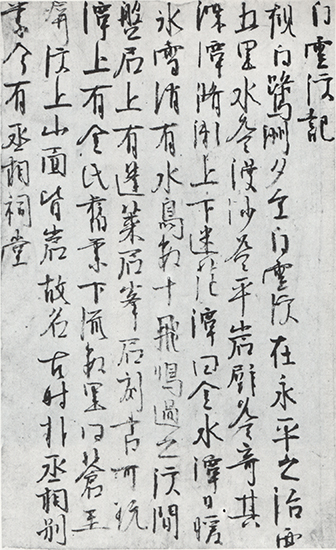 白雲溪記
觀白鷺洲夕至白雲溪在永平之治西
五里水益漫沙益平岩壁益奇其
深潭上下迷茫潭曰金水潭日暖
氷雪消有水鳥數十飛鳴過之溪間
盤石上有蓬萊石峯石刻書可玩
潭上有金氏舊業下流數里曰蒼玉
屏溪上山面皆岩故名古時朴丞相別
業今有丞相祠堂